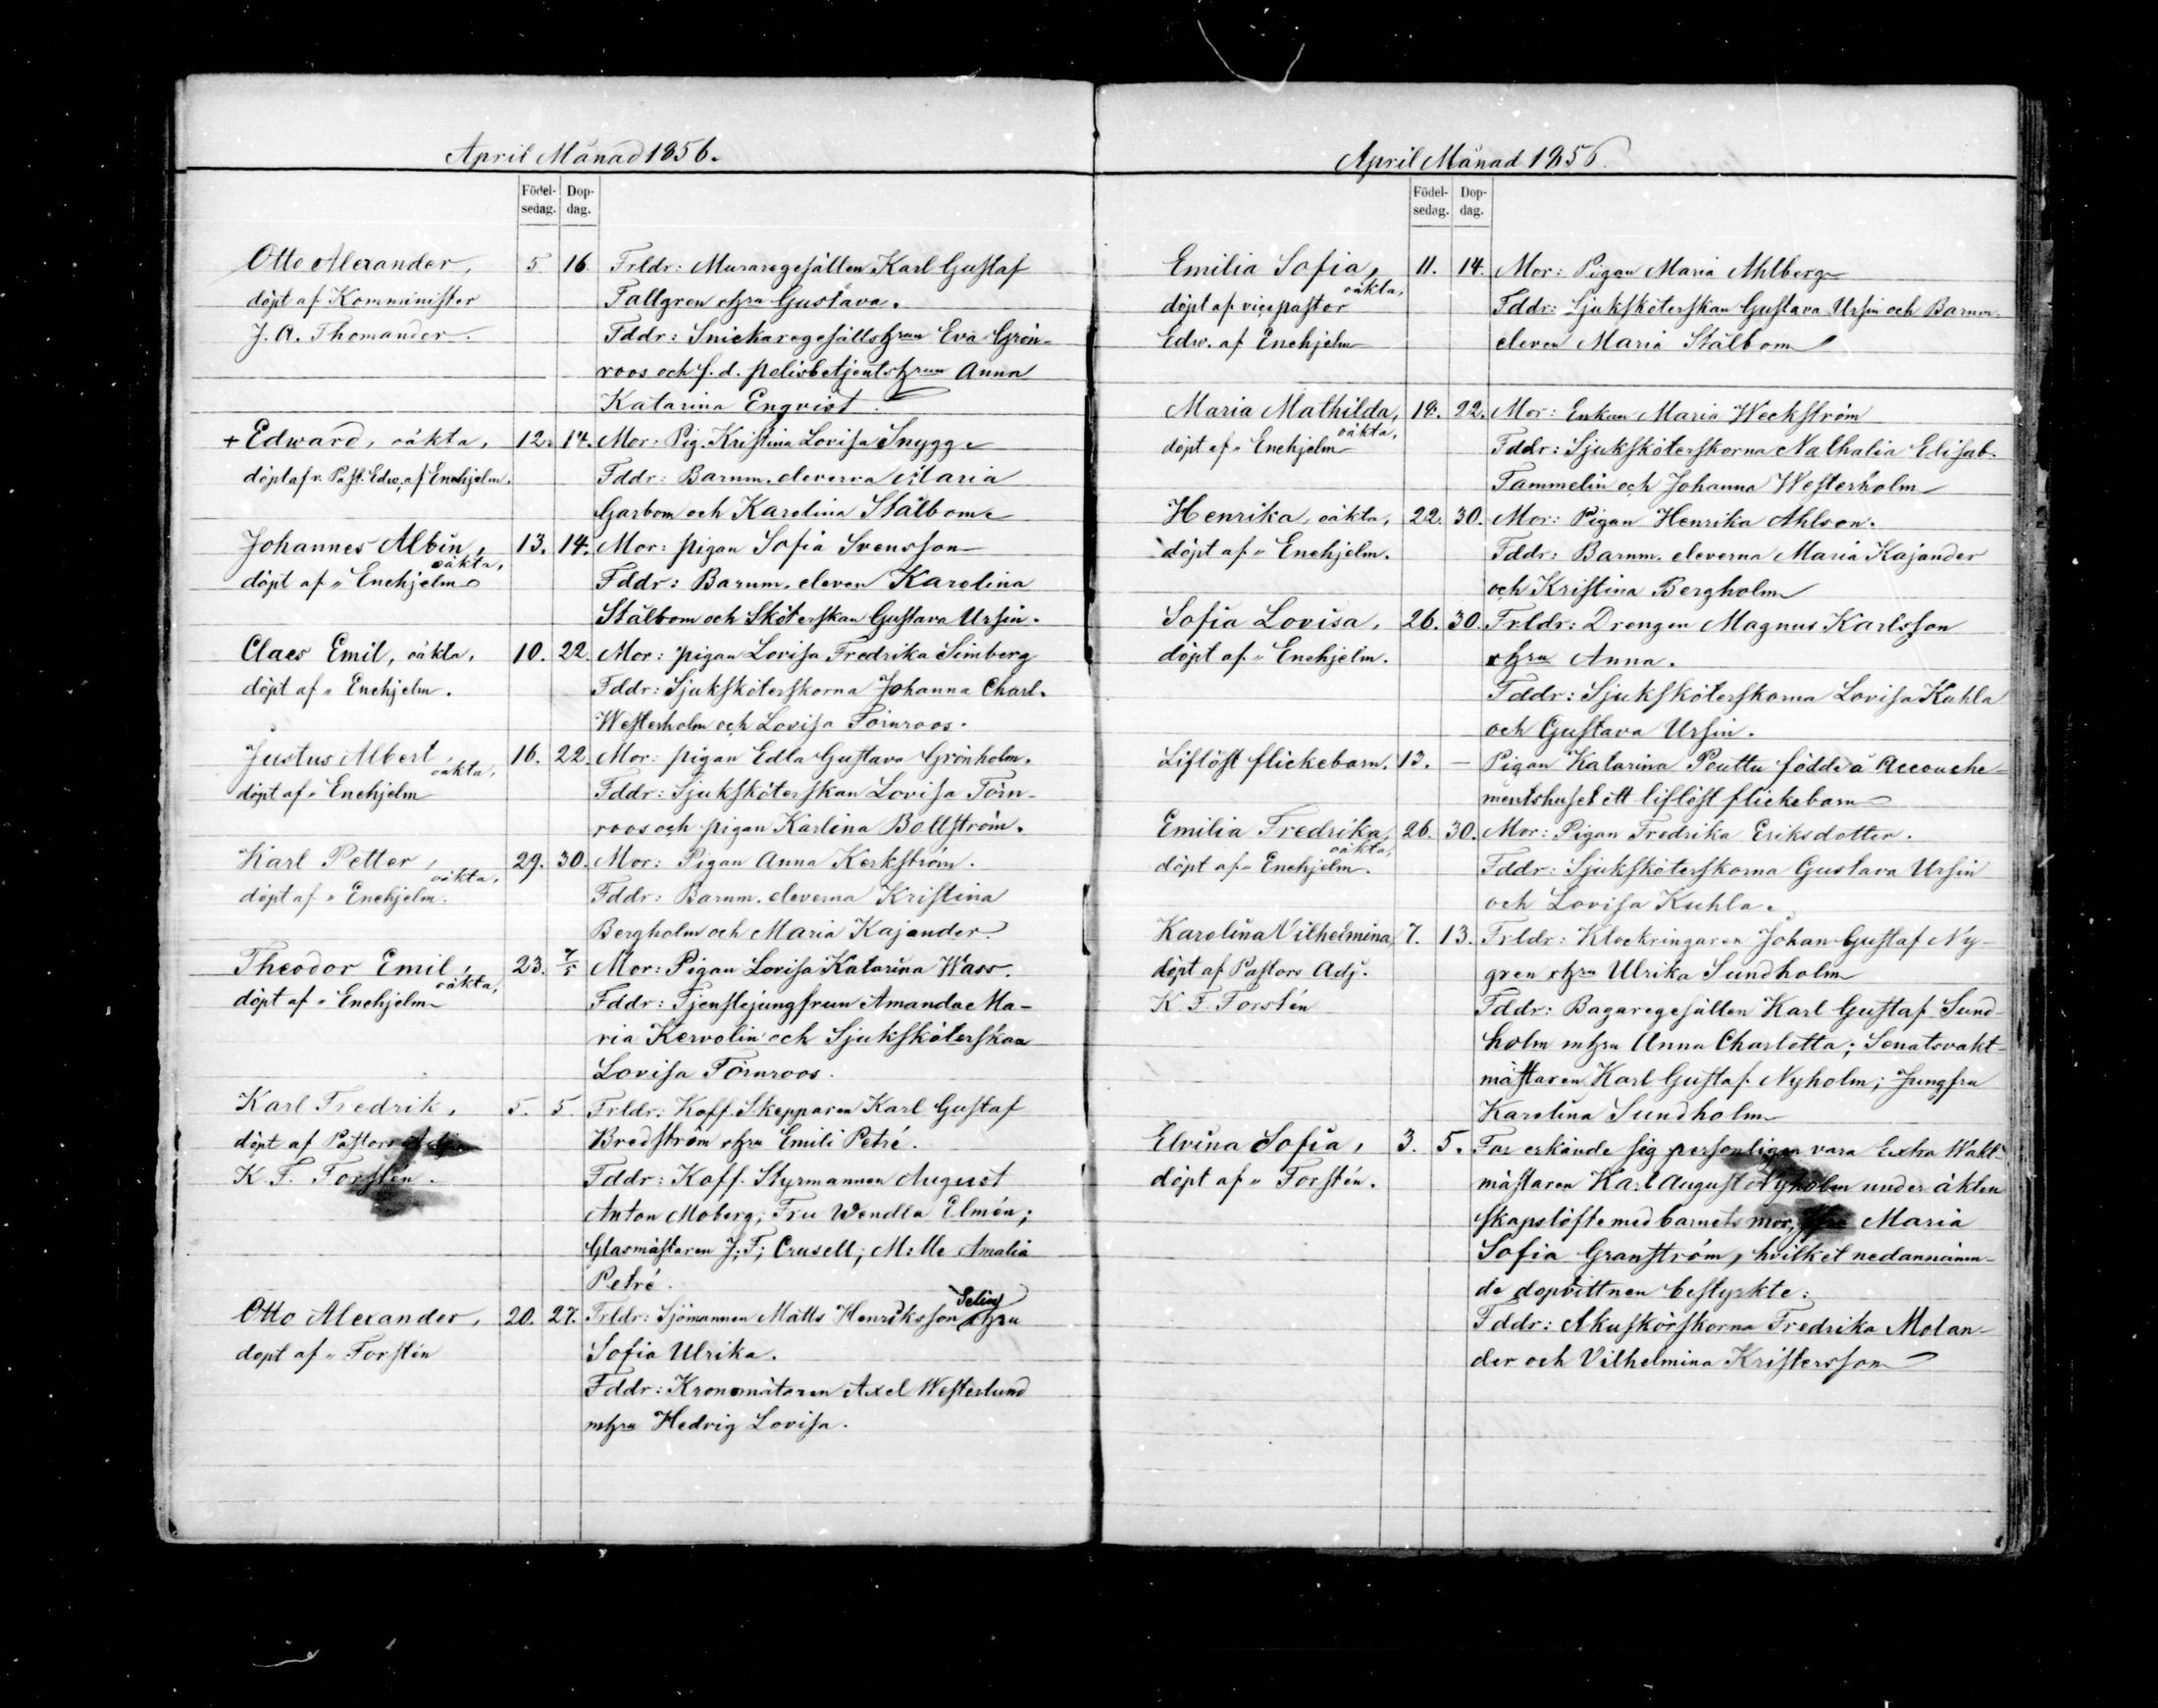 April Månad 1856.
Födel-
sedag.
Dop-
dag.
Otto Alexander, 5. 16. Frldr: Muraregesällen Karl Gustaf
döpt af Komminister Tallgren o hu Gustava.
J. A. Thomander. Fddr: Snickaregesällshun Eva Grön-
roos och f. d. polisbetjentshun Anna
Katarina Enqvist.
+ Edward, oäkta, 12. 14. Mor: Pig. Kristina Lovisa Snygg.
döpt af v. Past. Edw. af Enehjelm. Fddr: Barnm. eleverna Maria
Garbom och Karolina Stålbom.
Johannes Albin, oäkta, 13. 14. Mor: pigan Sofia Svensson
döpt af " Enehjelm Fddr: Barnm. eleven Karolina
Stålbom och Sköterskan Gustava Ursin.
Claes Emil, oäkta, 10. 22. Mor: pigan Lovisa Fredrika Simberg
döpt af " Enehjelm. Fddr: Sjuksköterskorna Johanna Charl.
Westerholm och Lovisa Törnroos.
Justus Albert, oäkta, 16. 22. Mor: pigan Edla Gustava Grönholm.
döpt af " Enehjelm Fddr: Sjuksköterskan Lovisa Törn-
roos och pigan Karlina Bollström.
Karl Petter, oäkta, 29. 30. Mor: Pigan Anna Kerkström.
döpt af " Enehjelm. Fddr: Barnm. eleverna Kristina
Bergholm och Maria Kajander.
Theodor Emil, oäkta, 23. 7/5 Mor: Pigan Lovisa Katarina Wass.
döpt af " Enehjelm Fddr: Tjenstejungfrun Amanda Ma-
ria Kervolin och Sjuksköterskan
Lovisa Törnroos.
Karl Fredrik, 5. 5. Frldr: Koff. Skepparen Karl Gustaf
döpt af Pastors Adj. Bredström o hu Emili Petré.
K. F. Forstén. Fddr: Koff. Styrmannen August
Anton Moberg; Fru Wendla Elmén;
Glasmästaren J. F. Crusell; M:lle Amalia
Petré.
Otto Alexander, 20. 27. Frldr: Sjömannen Matts Henriksson Selin o hu
döpt af " Forstén Sofia Ulrika.
Fddr: Kronomätaren Axel Westerlund
m hu Hedvig Lovisa.
April Månad 1856.
Födel-
sedag.
Dop-
dag.
Emilia Sofia, oäkta, 11. 14. Mor: Pigan Maria Ahlberg
döpt af vicepastor Fddr: Sjuksköterskan Gustava Ursin och Barnm.
Edw. af Enehjelm eleven Maria Stålbom
Maria Mathilda, oäkta, 19. 22. Mor: Enkan Maria Weckström
döpt af " Enehjelm Fddr: Sjuksköterskorna Nathalia Elisab.
Tammelin och Johanna Westerholm
Henrika, oäkta, 22. 30. Mor: Pigan Henrika Ahlson.
döpt af " Enehjelm. Fddr: Barnm. eleverna Maria Kajander
och Kristina Bergholm
Sofia Lovisa, 26. 30. Frldr: Drengen Magnus Karlsson
döpt af " Enehjelm. o hu Anna.
Fddr: Sjuksköterskorna Lovisa Kuhla
och Gustava Ursin.
Liflöst flickebarn. 13. – Pigan Katarina Peuttu födde å Accouche-
mentshuset ett liflöst flickebarn
Emilia Fredrika, oäkta, 26. 30. Mor: Pigan Fredrika Eriksdotter.
döpt af " Enehjelm. Fddr: Sjuksköterskorna Gustava Ursin
och Lovisa Kuhla.
Karolina Vilhelmina, 7. 13. Frldr: Klockringaren Johan Gustaf Ny-
döpt af Pastors Adj. gren o hu Ulrika Sundholm
K F. Forstén Fddr: Bagaregesällen Karl Gustaf Sund-
holm m hu Anna Charlotta; Senatsvakt-
mästaren Karl Gustaf Nyholm; Jungfru
Karolina Sundholm
Elvina Sofia, 3. 5. Far erkände sig personligen vara Extra Wakt-
döpt af " Forstén. mästaren Karl August Nyholm under äkten
skapslöfte med barnets mor, Maria
Sofia Granström, hvilket nedannämn-
de dopvittnen bestyrkte:
Fddr: Akuskörskorna Fredrika Molan-
der och Vilhelmina Kristersson